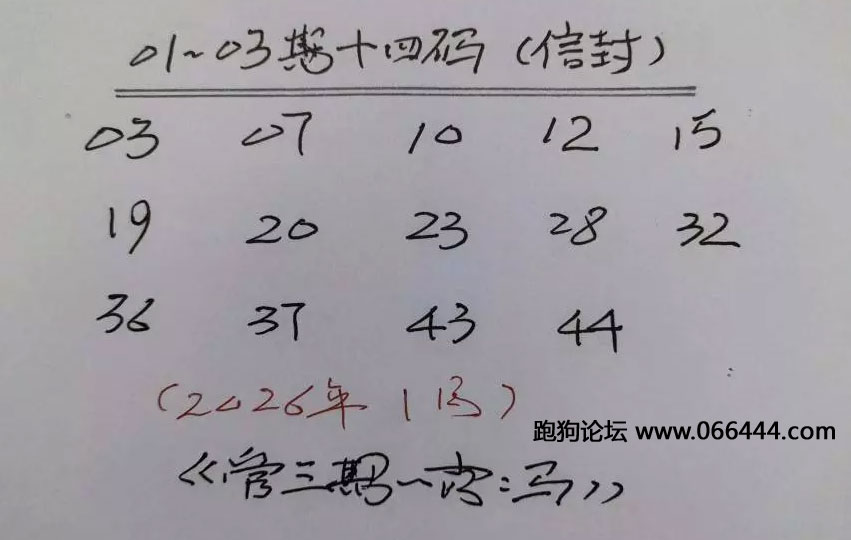 01~03期十四码(信封)
03 07 10 12 15
19 20 23 28 32
36 37 43 44
(2026年1月)
跑狗论坛 www.066444.com
《管三期一字:马》